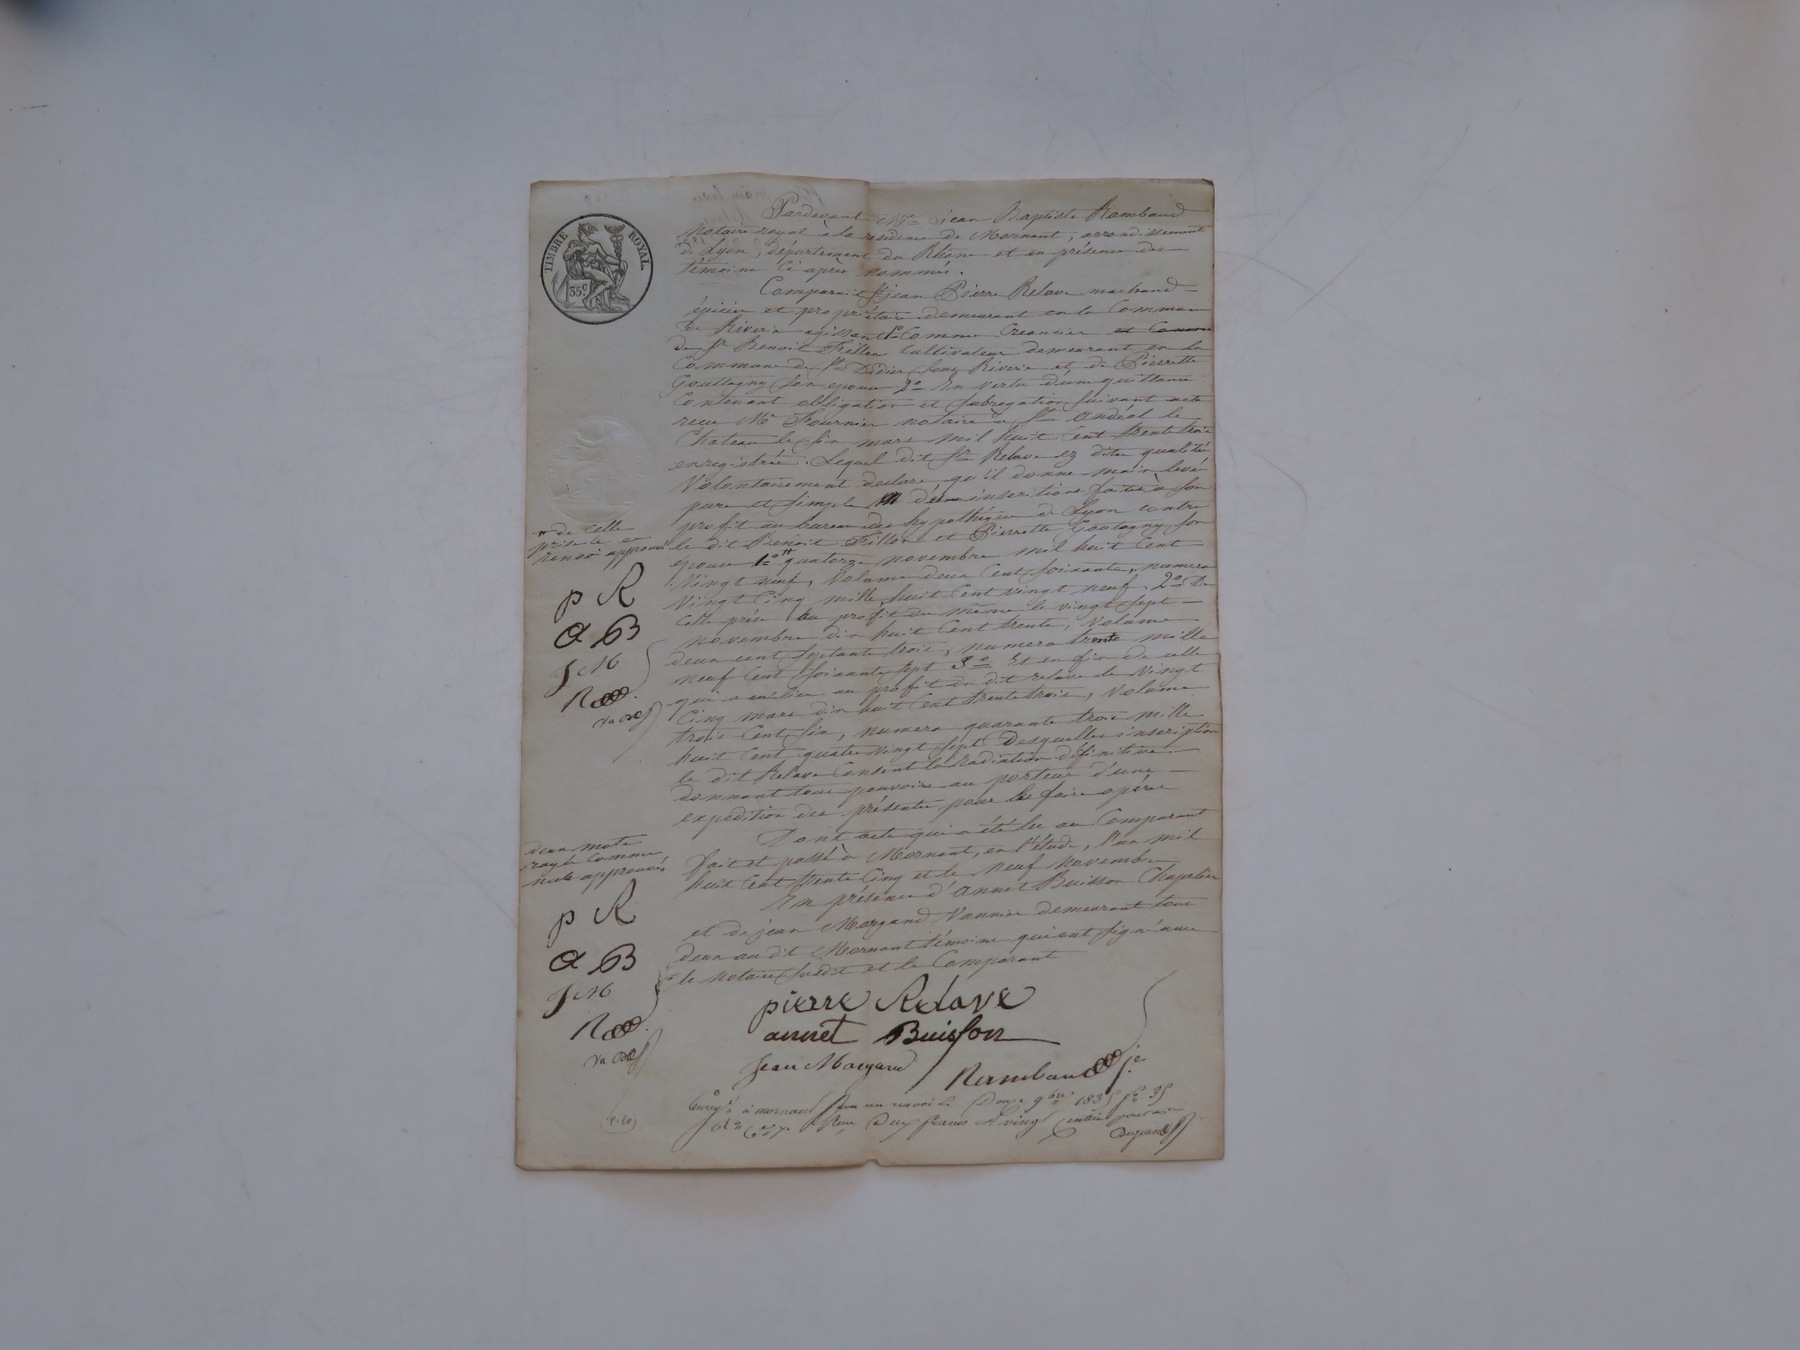 TIMBRE ROYAL
35 c
Pardevant Me jean Baptiste Rambaud
Notaire royal à la residence de Mornant, arrondissement
de Lyon, département du Rhône et en présence des
témoins ci après nommés.
Comparait Sr jean Pierre Relave marchand
épicier et propriétaire demeurant en la Commune
de Riverie agissant 1o Comme Creancier et Comme
de Sr Benoit Fillon Cultivateur demeurant en la
Commune de St Didier sous Riverie et de Pierrette
Goutagny son epouse 2o En vertu d'une quittance
Contenant obligation et subrogation suivant acte
reçu Me Fournier notaire à St andéol le
Chateau le six mars mil huit Cent trente trois
enregistrée. Lequel dit Sr Relave ez dites qualités
Volontairement declare qu'il donne main levée
pure et simple des inscriptions faites à son
profit au bureau des hypothéques de Lyon contre
le dit Benoit Fillon et Pierrette Goutagny son
epouse 1o quatorze novembre mil huit Cent
Vingt neuf, Volume deux Cent soixante, numero
Vingt Cinq mille huit Cent vingt neuf. 2o De
Celle prise au profit du même le vingt sept
novembre dix huit Cent trente, Volume
deux cent septante trois, numero trente mille
neuf Cent soixante sept 3o Et en fin de celle
qui a eu lieu au profit du dit relave le Vingt
Cinq mars dix huit Cent trente trois, Volume
trois Cent six, numero quarante trois mille
huit Cent quatre vingt sept Desquelles inscription
le dit Relave Consent la radiation définitive
donnant tous pouvoirs au porteur d'une
expedition des présentes pour les faire opérer
Dont acte qui a été lu au Comparant
fait et passé à Mornant, en l'étude, l'an mil
huit Cent trente Cinq et le neuf Novembre
En présence d'annet Buisson Chapelier
et de jean Morgand Vannier demeurant tous
deux au dit Mornant témoins qui ont signé avec
le notaire susdit et le Comparant
de celle
prise le
renvoi approuvé
p R
a B
deux mots
rayés Comme
nuls approuvés
p R
a B
pierre Relave
annet Buisson
jean Morgand
Rambaud
à mornant un renvoi le Douze 9bre 1835 fo 35
Reçu Deux francs & vingt centimes